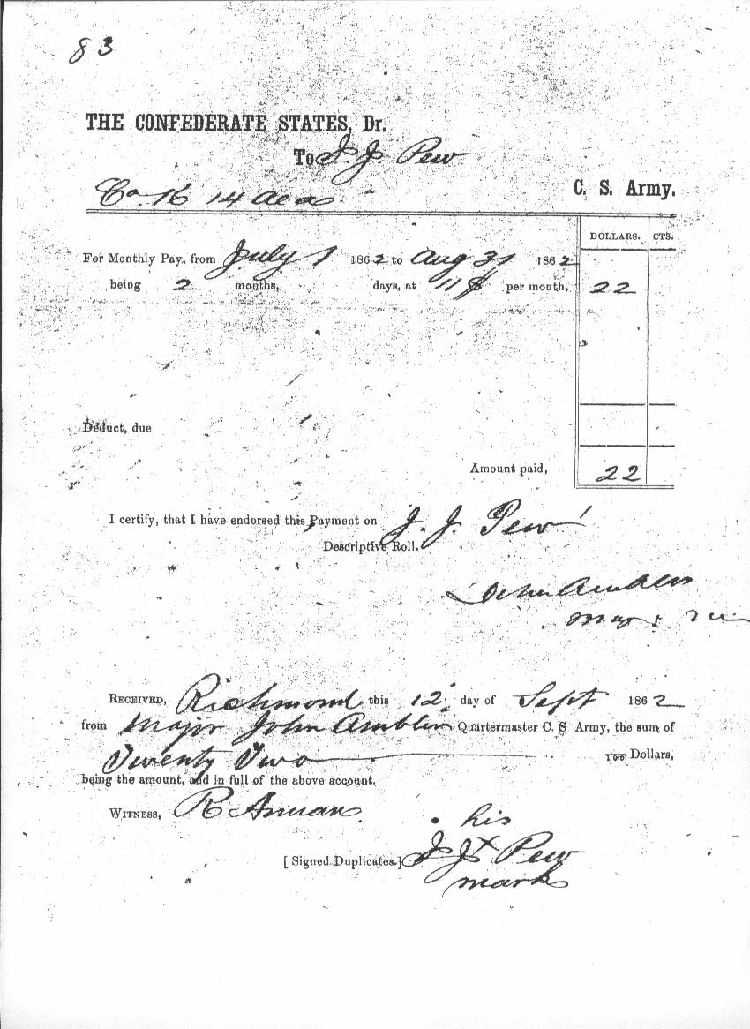 83
THE CONFEDERATE STATES, Dr.
To J. J. Pew
Co. K 14 Ala
C. S. Army.
DOLLARS. CTS.
For Monthly Pay, from July 1 1862 to Aug 31 1862
being 2 months, days, at 11 $ per month, 22
Deduct, due
Amount paid, 22
I certify, that I have endorsed this Payment on J. J. Pew
Descriptive Roll.
John Ambler
Maj.
RECEIVED, Richmond this 12 day of Sept 1862
from Major John Ambler Quartermaster C. S. Army, the sum of
Twenty Two 100 Dollars,
being the amount, and in full of the above account.
WITNESS,
his
[Signed Duplicates.] J. J. X Pew
mark